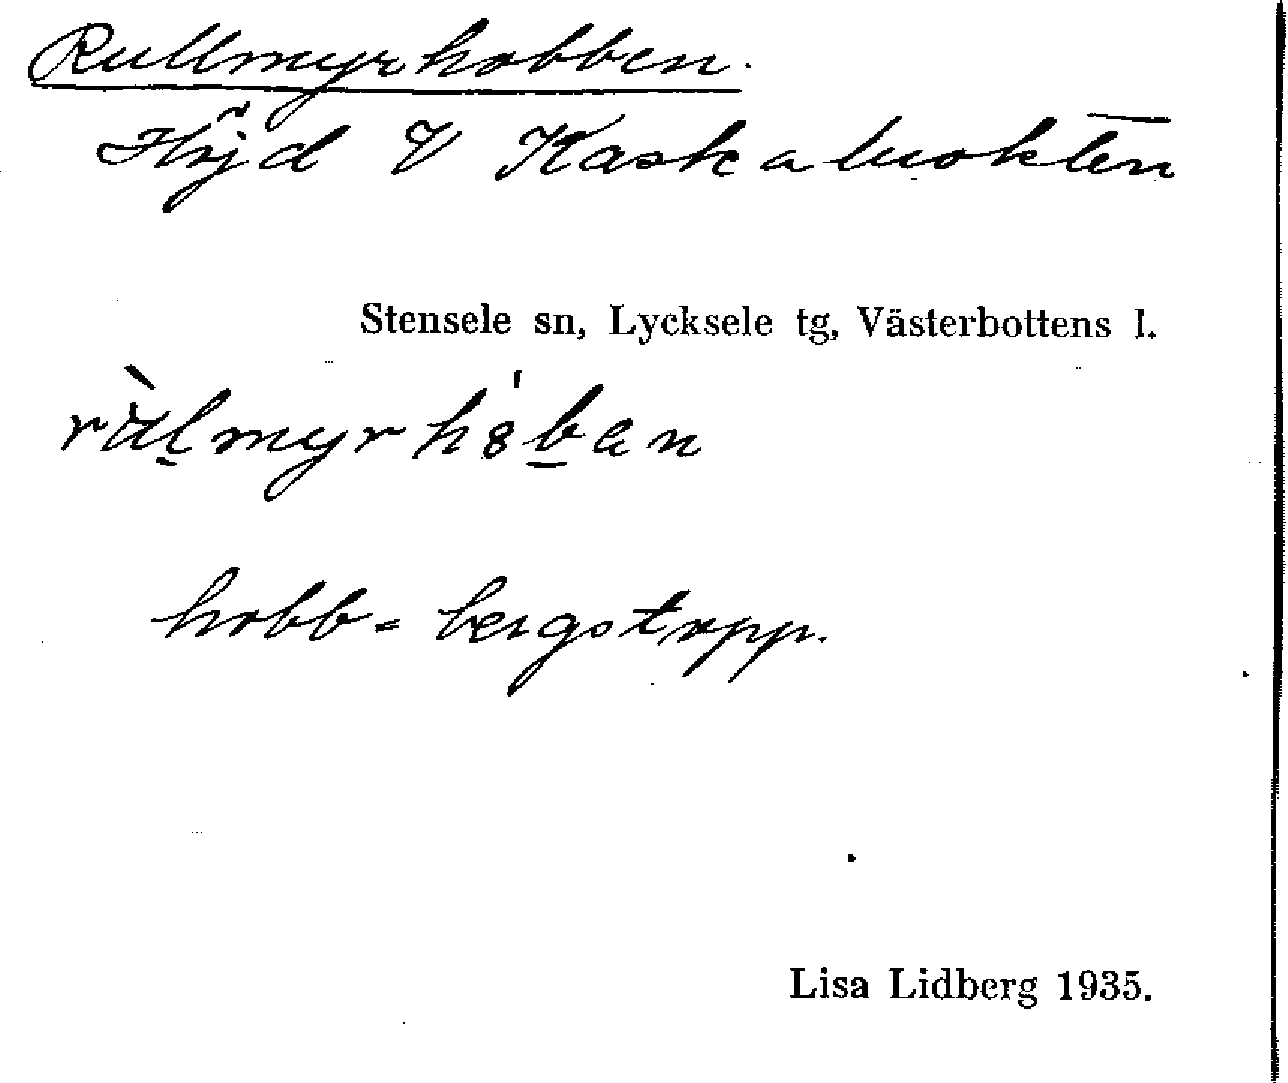 Rullmyrhobben.
Höjd V Kaskaluokten
Stensele sn, Lycksele tg, Västerbottens l.
hobb = bergstopp.
Lisa Lidberg 1935.